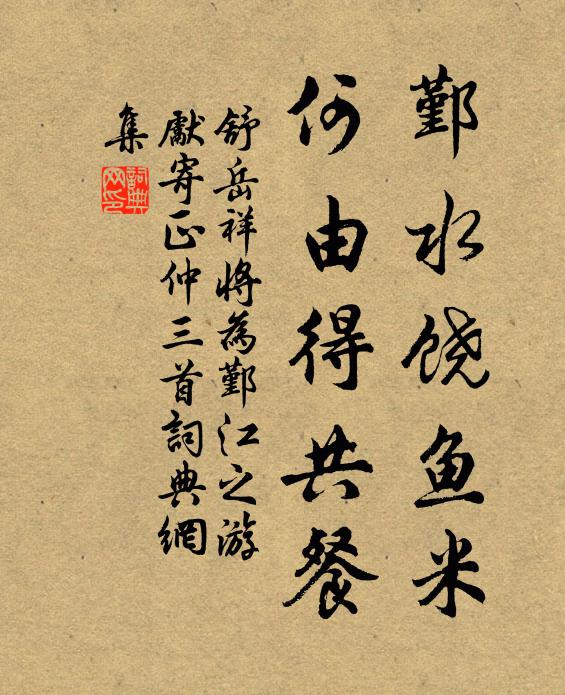 鄞水饶鱼米
何由得共餐
舒岳祥將為鄞江之游
獻寄正仲三首詞典網
集
詞典
网印